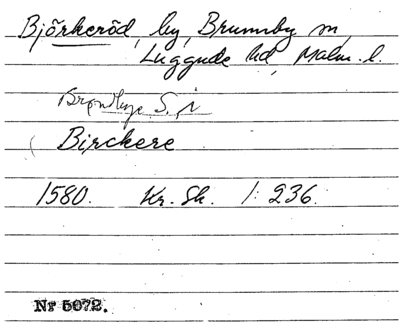 Björkeröd, by, Brunnby sn,
Luggude hd, Malm. l.
S. N
Birckere
1580. Kr. Sk. 1: 236.
Nr 5072.